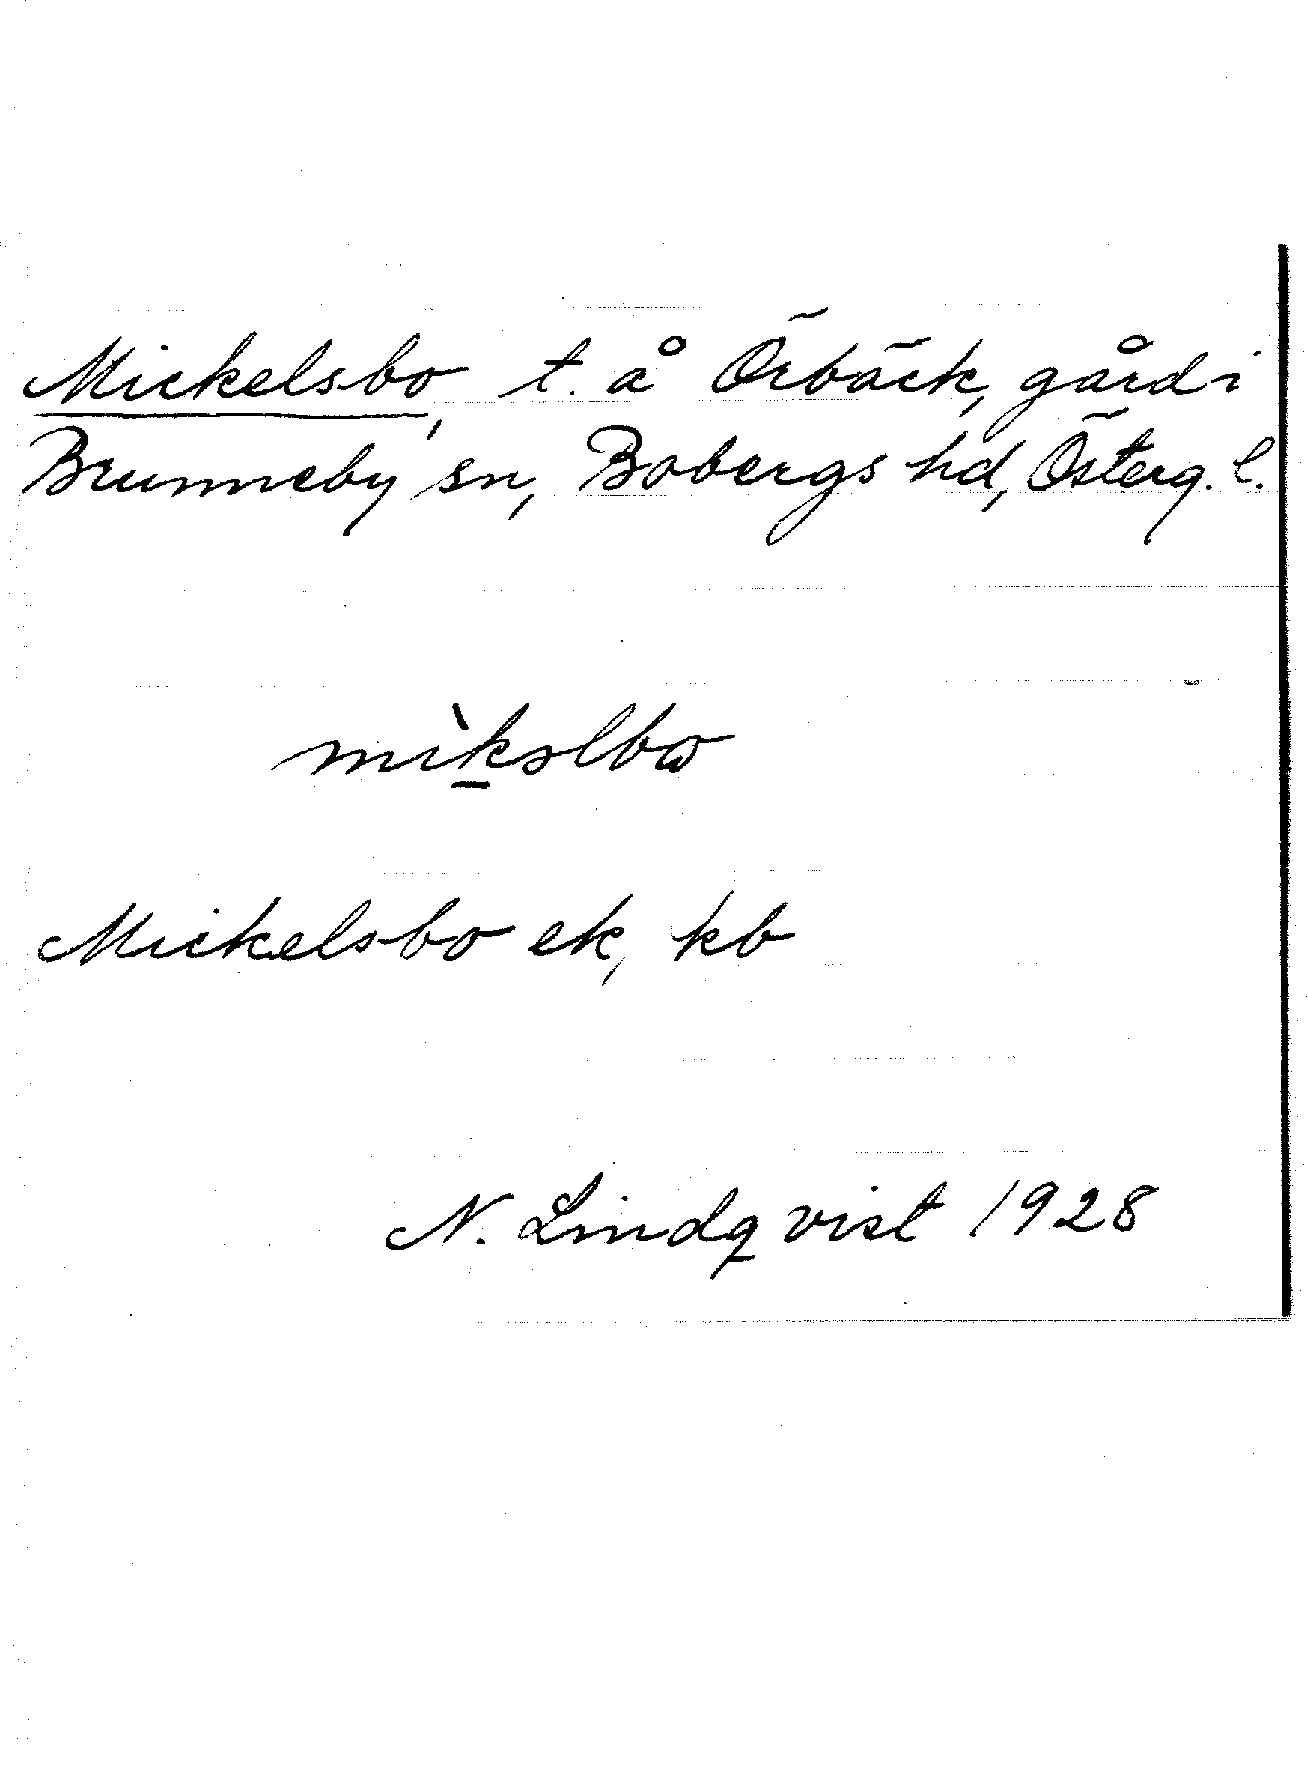 Mickelsbo, t. å Örbäck, gård i
Brunneby sn, Bobergs hd, Österg. l.
mìk̲əlbω
Mickelsbo ek, kb
N. Lindqvist 1928